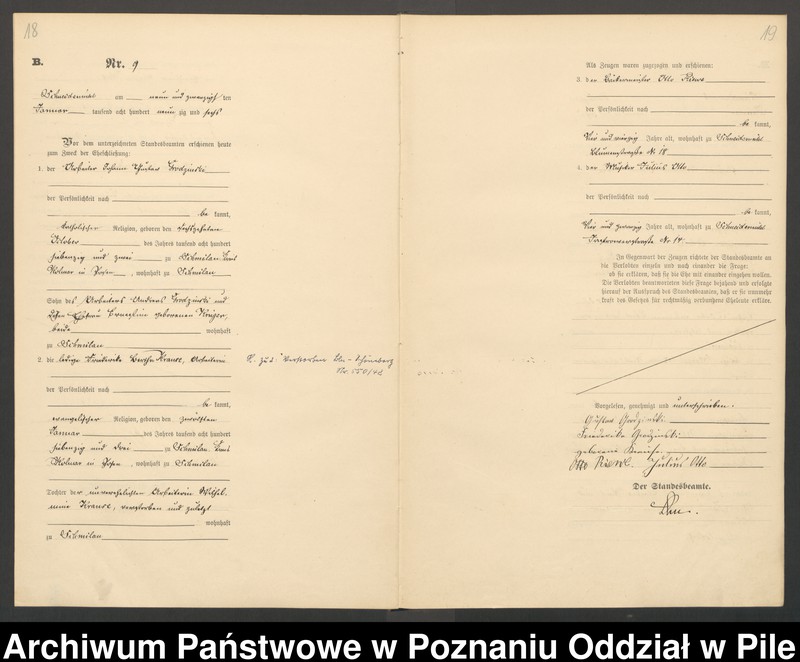 18
B. Nr. 9
Schneidemühl am neun und zwanzigsten
Januar tausend acht hundert neunzig und sechs
Vor dem unterzeichneten Standesbeamten erschienen heute
zum Zweck der Eheschließung:
1. der Arbeiter Johann Gustav Grodzinski
der Persönlichkeit nach
be kannt,
katholischer Religion, geboren den
October des Jahres tausend acht hundert
siebenzig und zwei zu Schmilau, Kreis
Kolmar in Posen, wohnhaft zu Schmilau
Sohn des Arbeiters Andreas Grodzinski und
geborenen Krüger,
beide wohnhaft
zu Schmilau
2. die ledige Friederike Bertha Krause, Arbeiterin
der Persönlichkeit nach
be kannt,
evangelischer Religion, geboren den zwölften
Januar des Jahres tausend acht hundert
siebenzig und drei zu Schmilau, Kreis
Kolmar in Posen, wohnhaft zu Schmilau
Tochter der unverehelichten Arbeiterin Wilhel-
mine Krause, verstorben und zuletzt
wohnhaft
zu Schmilau
zu 2: Verstorben Bln-Schöneberg
Nr. 550/48
19
Als Zeugen waren zugezogen und erschienen:
3. der Otto
der Persönlichkeit nach
be kannt,
vier und vierzig Jahre alt, wohnhaft zu Schneidemühl
Blumenstraße N. 18
4. der Julius Otto
der Persönlichkeit nach
be kannt,
vier und zwanzig Jahre alt, wohnhaft zu Schneidemühl
Nr 14
In Gegenwart der Zeugen richtete der Standesbeamte an
die Verlobten einzeln und nach einander die Frage:
ob sie erklären, daß sie die Ehe mit einander eingehen wollen.
Die Verlobten beantworteten diese Frage bejahend und erfolgte
hierauf der Ausspruch des Standesbeamten, daß er sie nunmehr
kraft des Gesetzes für rechtmäßig verbundene Eheleute erkläre.
Vorgelesen, genehmigt und unterschrieben.
Gustav Grodzinski
Friederike Grodzinski
geborene Krause
Otto Julius Otto
Der Standesbeamte.
Archiwum Państwowe w Poznaniu Oddział w Pile